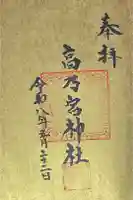 奉拝
高乃宮神社
令和八年五月二十二日